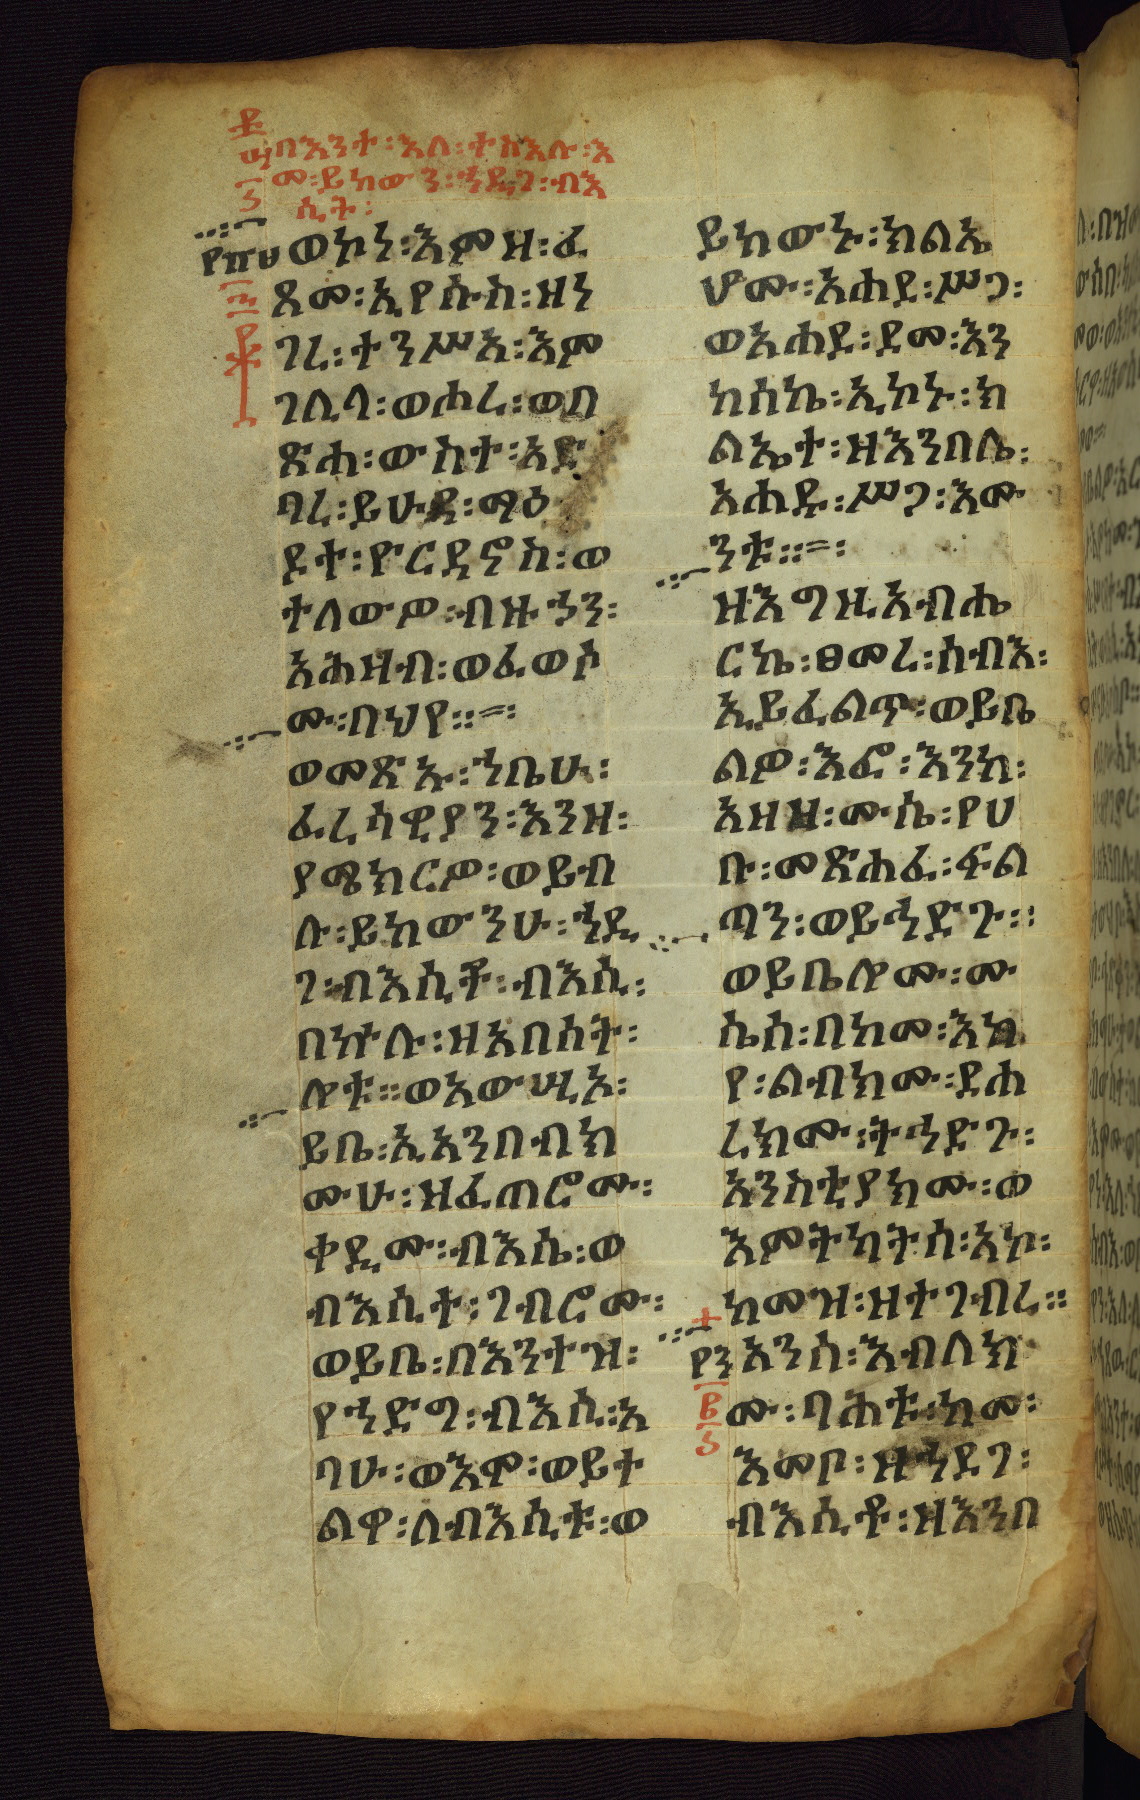 በእንተ፡እለ፡ተስእሉ፡እ
መ፡ይከውን፡ኀዲገ፡ብእ
ሲት፡
ወኮነ፡እምዝ፡ፈ
ጸመ፡ኢየሱስ፡ዘነ
ገረ፡ተንሥአ፡እም
ገሊላ፡ወሐረ፡ወበ
ጽሐ፡ውስተ፡አድ
ባረ፡ይሁዳ፡ማዕ
ዶተ፡ዮርዳኖስ፡ወ
ተለውዎ፡ብዙኃን፡
አሕዛብ፡ወፈወሶ
ሙ፡በህየ።=፡
ወመጽኡ፡ኀቤሁ፡
ፈሪሳዊያን፡እንዘ፡
ያሜክርዎ፡ወይብ
ሉ፡ይከውንሁ፡ኀዲ
ገ፡ብእሲቶ፡ብእሲ፡
በኵሉ፡ዘአበሰት፡
ሎቱ።ወአውሥአ፡
ይቤ፡ኢአንበብክ
ሙሁ፡ዝፈጠሮሙ፡
ቀዲሙ፡ብእሴ፡ወ
ብእሲተ፡ገብሮሙ፡
ወይቤ፡በእንተዝ፡
የኀድግ፡ብእሲ፡አ
ባሁ፡ወእሞ፡ወይተ
ልዋ፡ለብእሲቱ፡ወ
ይከውኑ፡ክልኤ
ሆሙ፡አሐደ፡ሥጋ፡
ወአሐደ፡ደመ፡እን
ከሰኬ፡ኢኮኑ፡ክ
ልኤተ፡ዘእንበሌ፡
አሐዱ፡ሥጋ፡እሙ
ንቱ።=፡
ዘእግዚአብሔ
ርኬ፡ፀመረ፡ሰብእ፡
ኢይፈልጥ፡ወይቤ
ልዎ፡እፎ፡እንከ፡
አዘዝ፡ሙሴ፡የሀ
ቡ፡መጽሐፈ፡ፍል
ጣን፡ወይኅድጉ፡፡
ወይቤሎሙ፡ሙ
ሴሰ፡በከመ፡እኩ
የ፡ልብክሙ፡ደሐ
ረክሙ፡ትኅድጉ፡
አንስቲያክሙ፡ወ
እምትካትሰ፡አኮ፡
ከመዝ፡ዝተገብረ።
አንሰ፡እብለክ
ሙ፡ባሕቱ፡ከመ፡
እመቦ፡ዝኀደገ፡
ብእሲቶ፡ዘእንበ